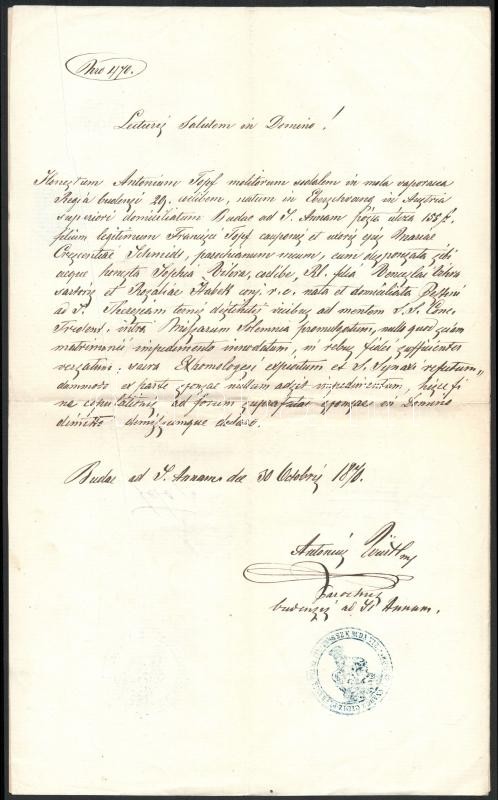 Nro 4/70.
Lecturis Salutem in Domino!
Honestum Antonium Topf molitorum sodalem in mola vaporacea
Regia budensi 29. cælibem, natum in in Austria
superiori domiciliatum Budae ad S. Annam utcza 155 f.
filium legitimum Francisci Topf cauponis et uxoris ejus Mariae
Crescentiae Schmidt, parochianum meum, cum desponsata sibi
aeque honesta Sophia, caelibe, Rl. filia
sartoris et Rozaliae Habek conj. r. c. nata et domiciliata Pestini
ad S. Theresiam ternis distinctis vicibus ad mentem S. S. Conc.
Trident. intra Missarum Solemnia promulgatum, nullo quod sciam
matrimonii impedimento innodatum, in rebus fidei sufficienter
versatum, sacra Exomologesi expiatum et S. Synaxi refectum„
dummodo ex parte sponsae nullum adsit impedimentum, hisce fi
na copulationis ad forum suprafatae sponsae in Domino
dimitto dimissumque declaro.
Budae ad S. Annam die 30 Octobris 1870.
Antonius mp
Parochus
budensis ad S. Annam.